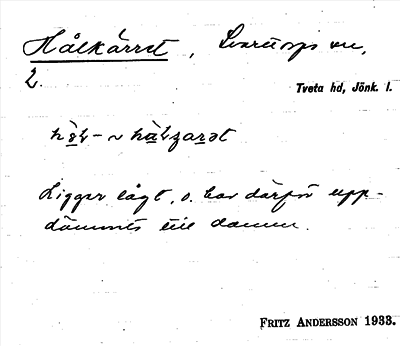 Hålkärret, Svarttorps sn,
2.
Tveta hd, Jönk. l.
Ligger lågt, o. har därför upp-
dämmts till damm.
FRITZ ANDERSSON 1933.